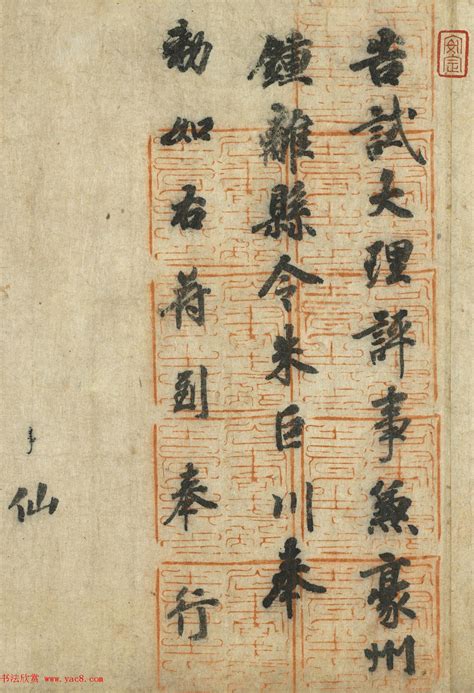 告試大理評事兼豪州
鍾離縣令朱巨川奉
勅如右符到奉行
仙
书法欣赏 www.yac8.com